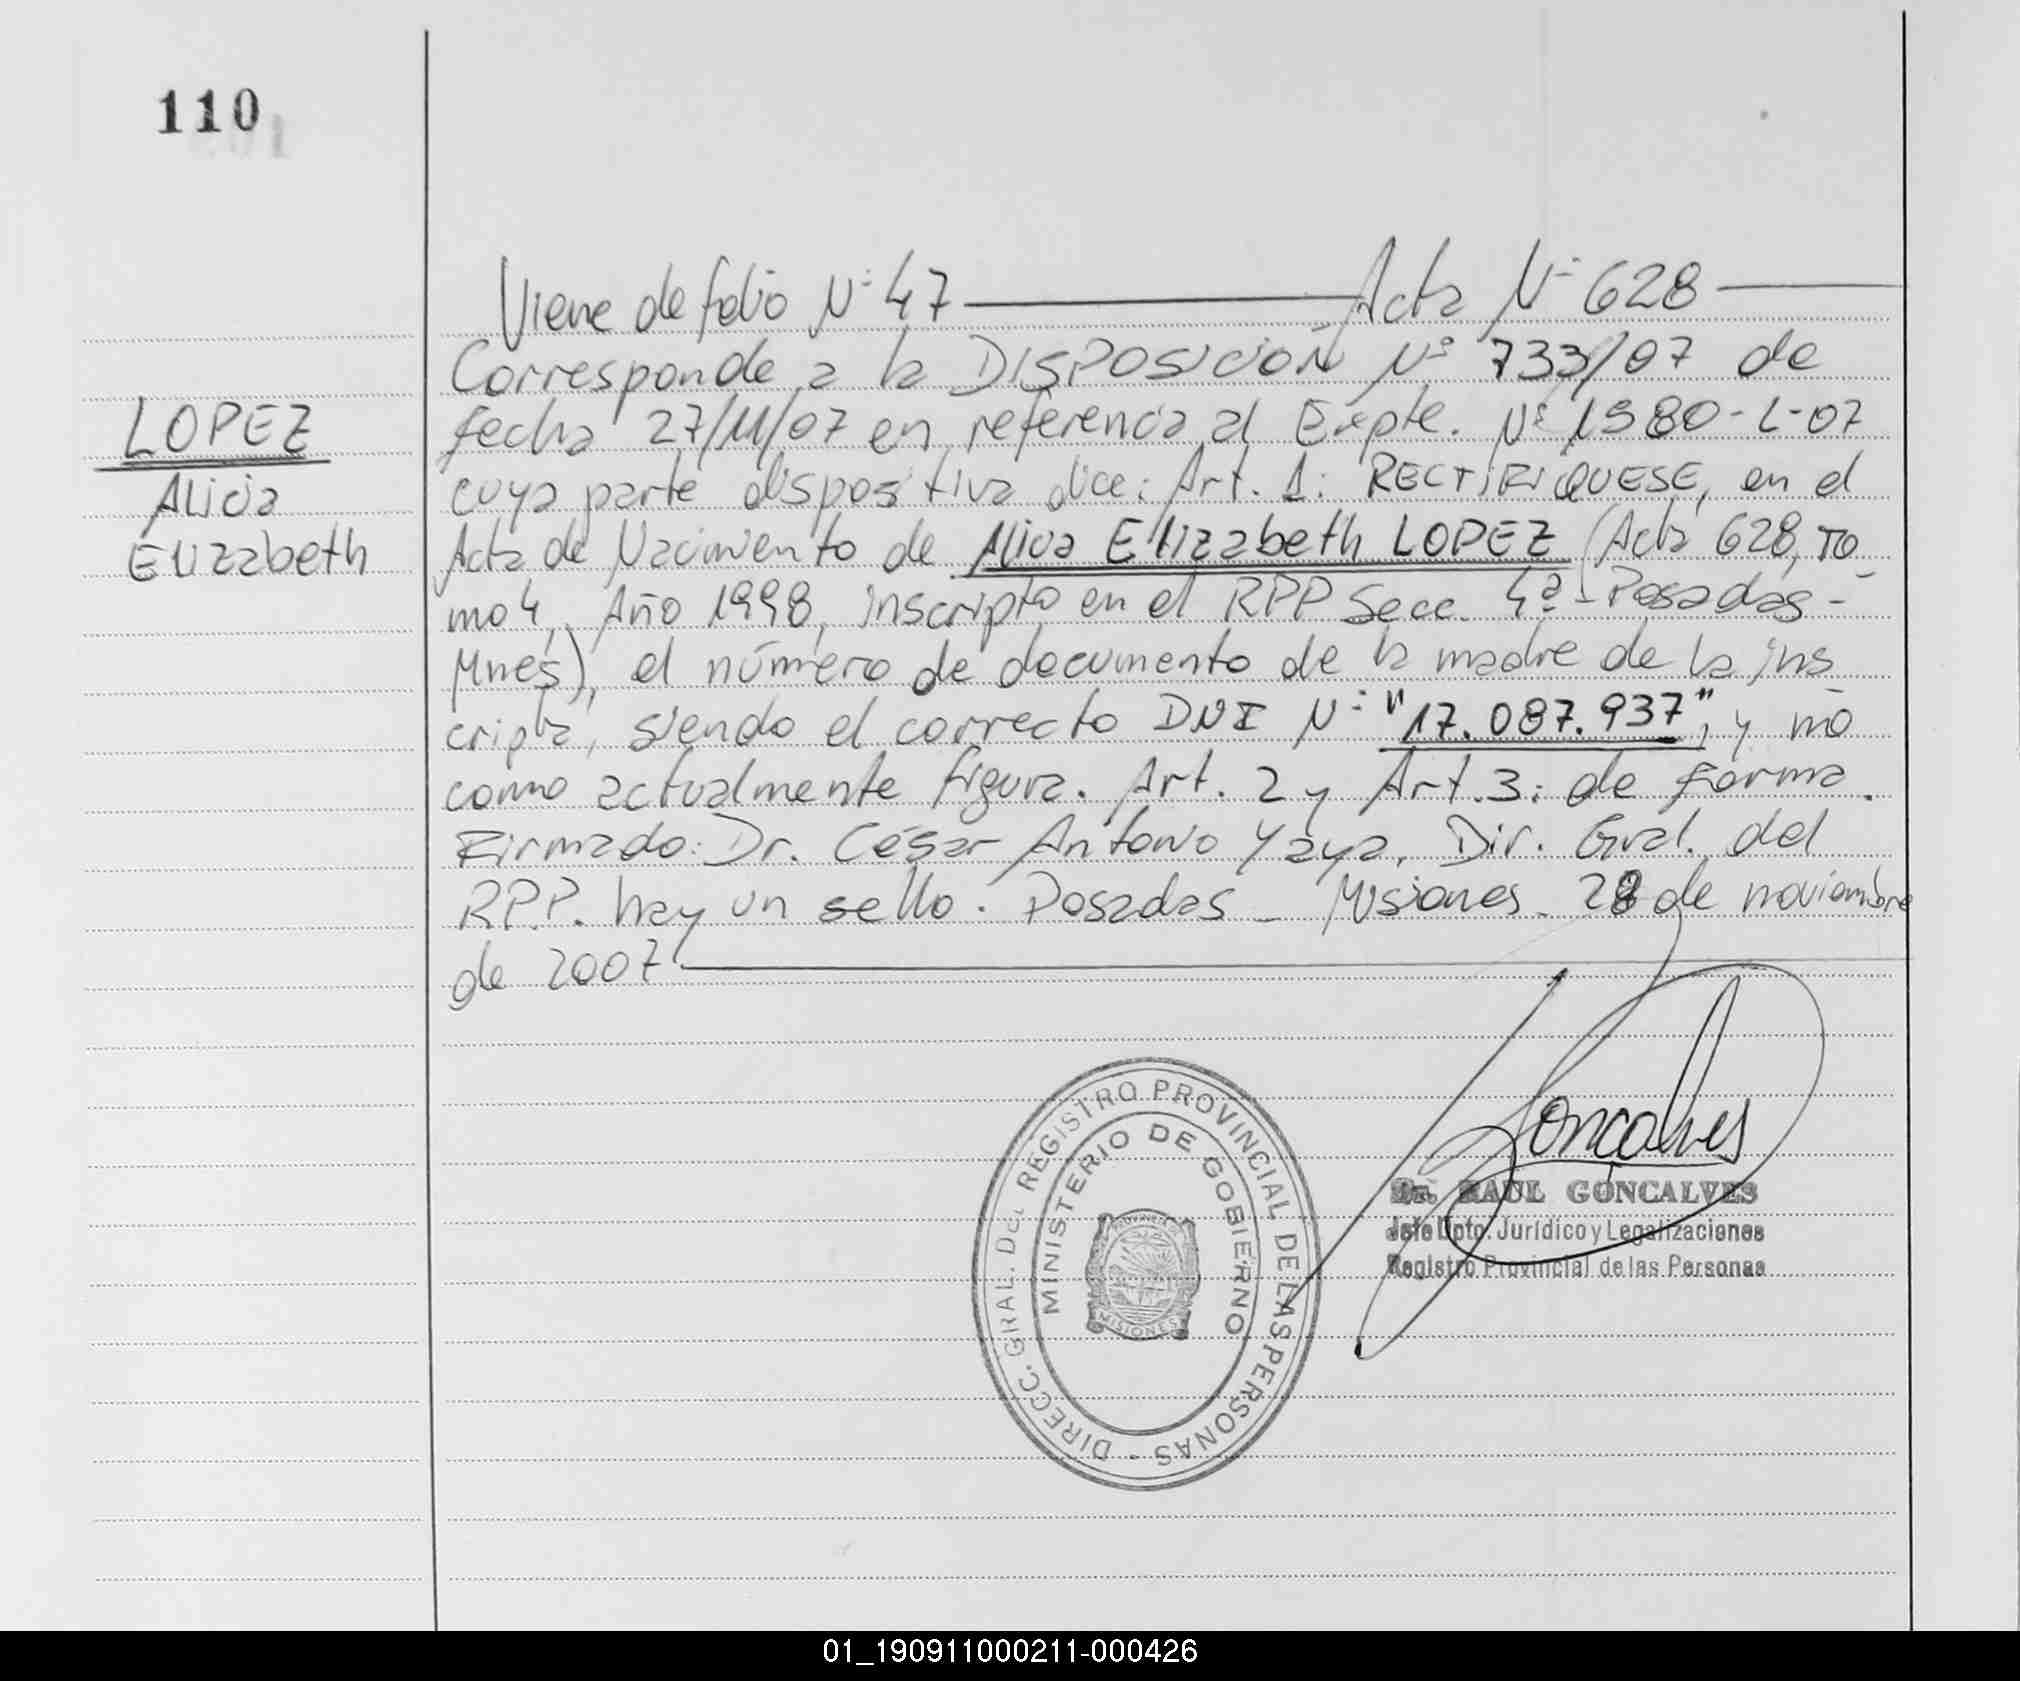 110
Viene de folio Nº 47 Acta Nº 628
Corresponde a la DISPOSICIÓN Nº 733/07 de
fecha 27/11/07 en referencia al Expte. Nº 1980-L-07
cuya parte dispositiva dice: Art. 1: RECTIFIQUESE, en el
Acta de Nacimiento de Alicia Elizabeth LOPEZ (Acta 628, To
mo 4, Año 1998, inscripta en el RPP Secc. 4ª - Posadas -
Mnes), el número de documento de la madre de la ins
cripta, siendo el correcto DNI Nº "17.087.937", y no
como actualmente figura. Art. 2 y Art. 3: de forma.
Firmado: Dr. César Antonio Yaya, Dir. Gral. del
RPP. hay un sello. Posadas - Misiones - 28 de noviembre
de 2007
LOPEZ
Alicia
Elizabeth
Gonçalves
Dr. RAUL GONCALVES
Jefe Dpto. Jurídico y Legalizaciones
Registro Provincial de las Personas
DIRECC. GRAL. DEL REGISTRO PROVINCIAL DE LAS PERSONAS -
MINISTERIO DE GOBIERNO
MISIONES
01_190911000211-000426